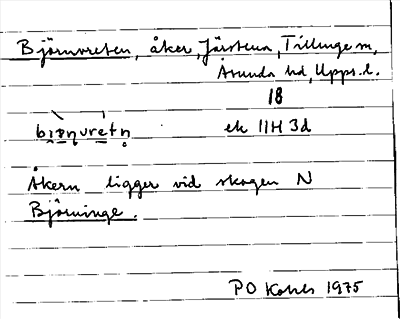 Björnvreten, åker, Järstena, Tillinge sn,
Åsunda hd, Upps. l.
18
bìǝ̣ṇvrétn̥ ek 11H 3d
Åkern ligger vid skogen N
Björninge.
PO 1975